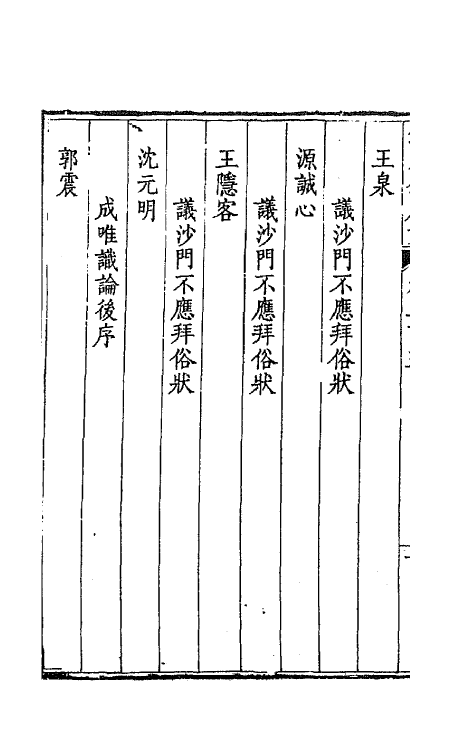 王泉
議沙門不應拜俗狀
源誠心
議沙門不應拜俗狀
王隱客
議沙門不應拜俗狀
沈元明
成唯識論後序
郭震